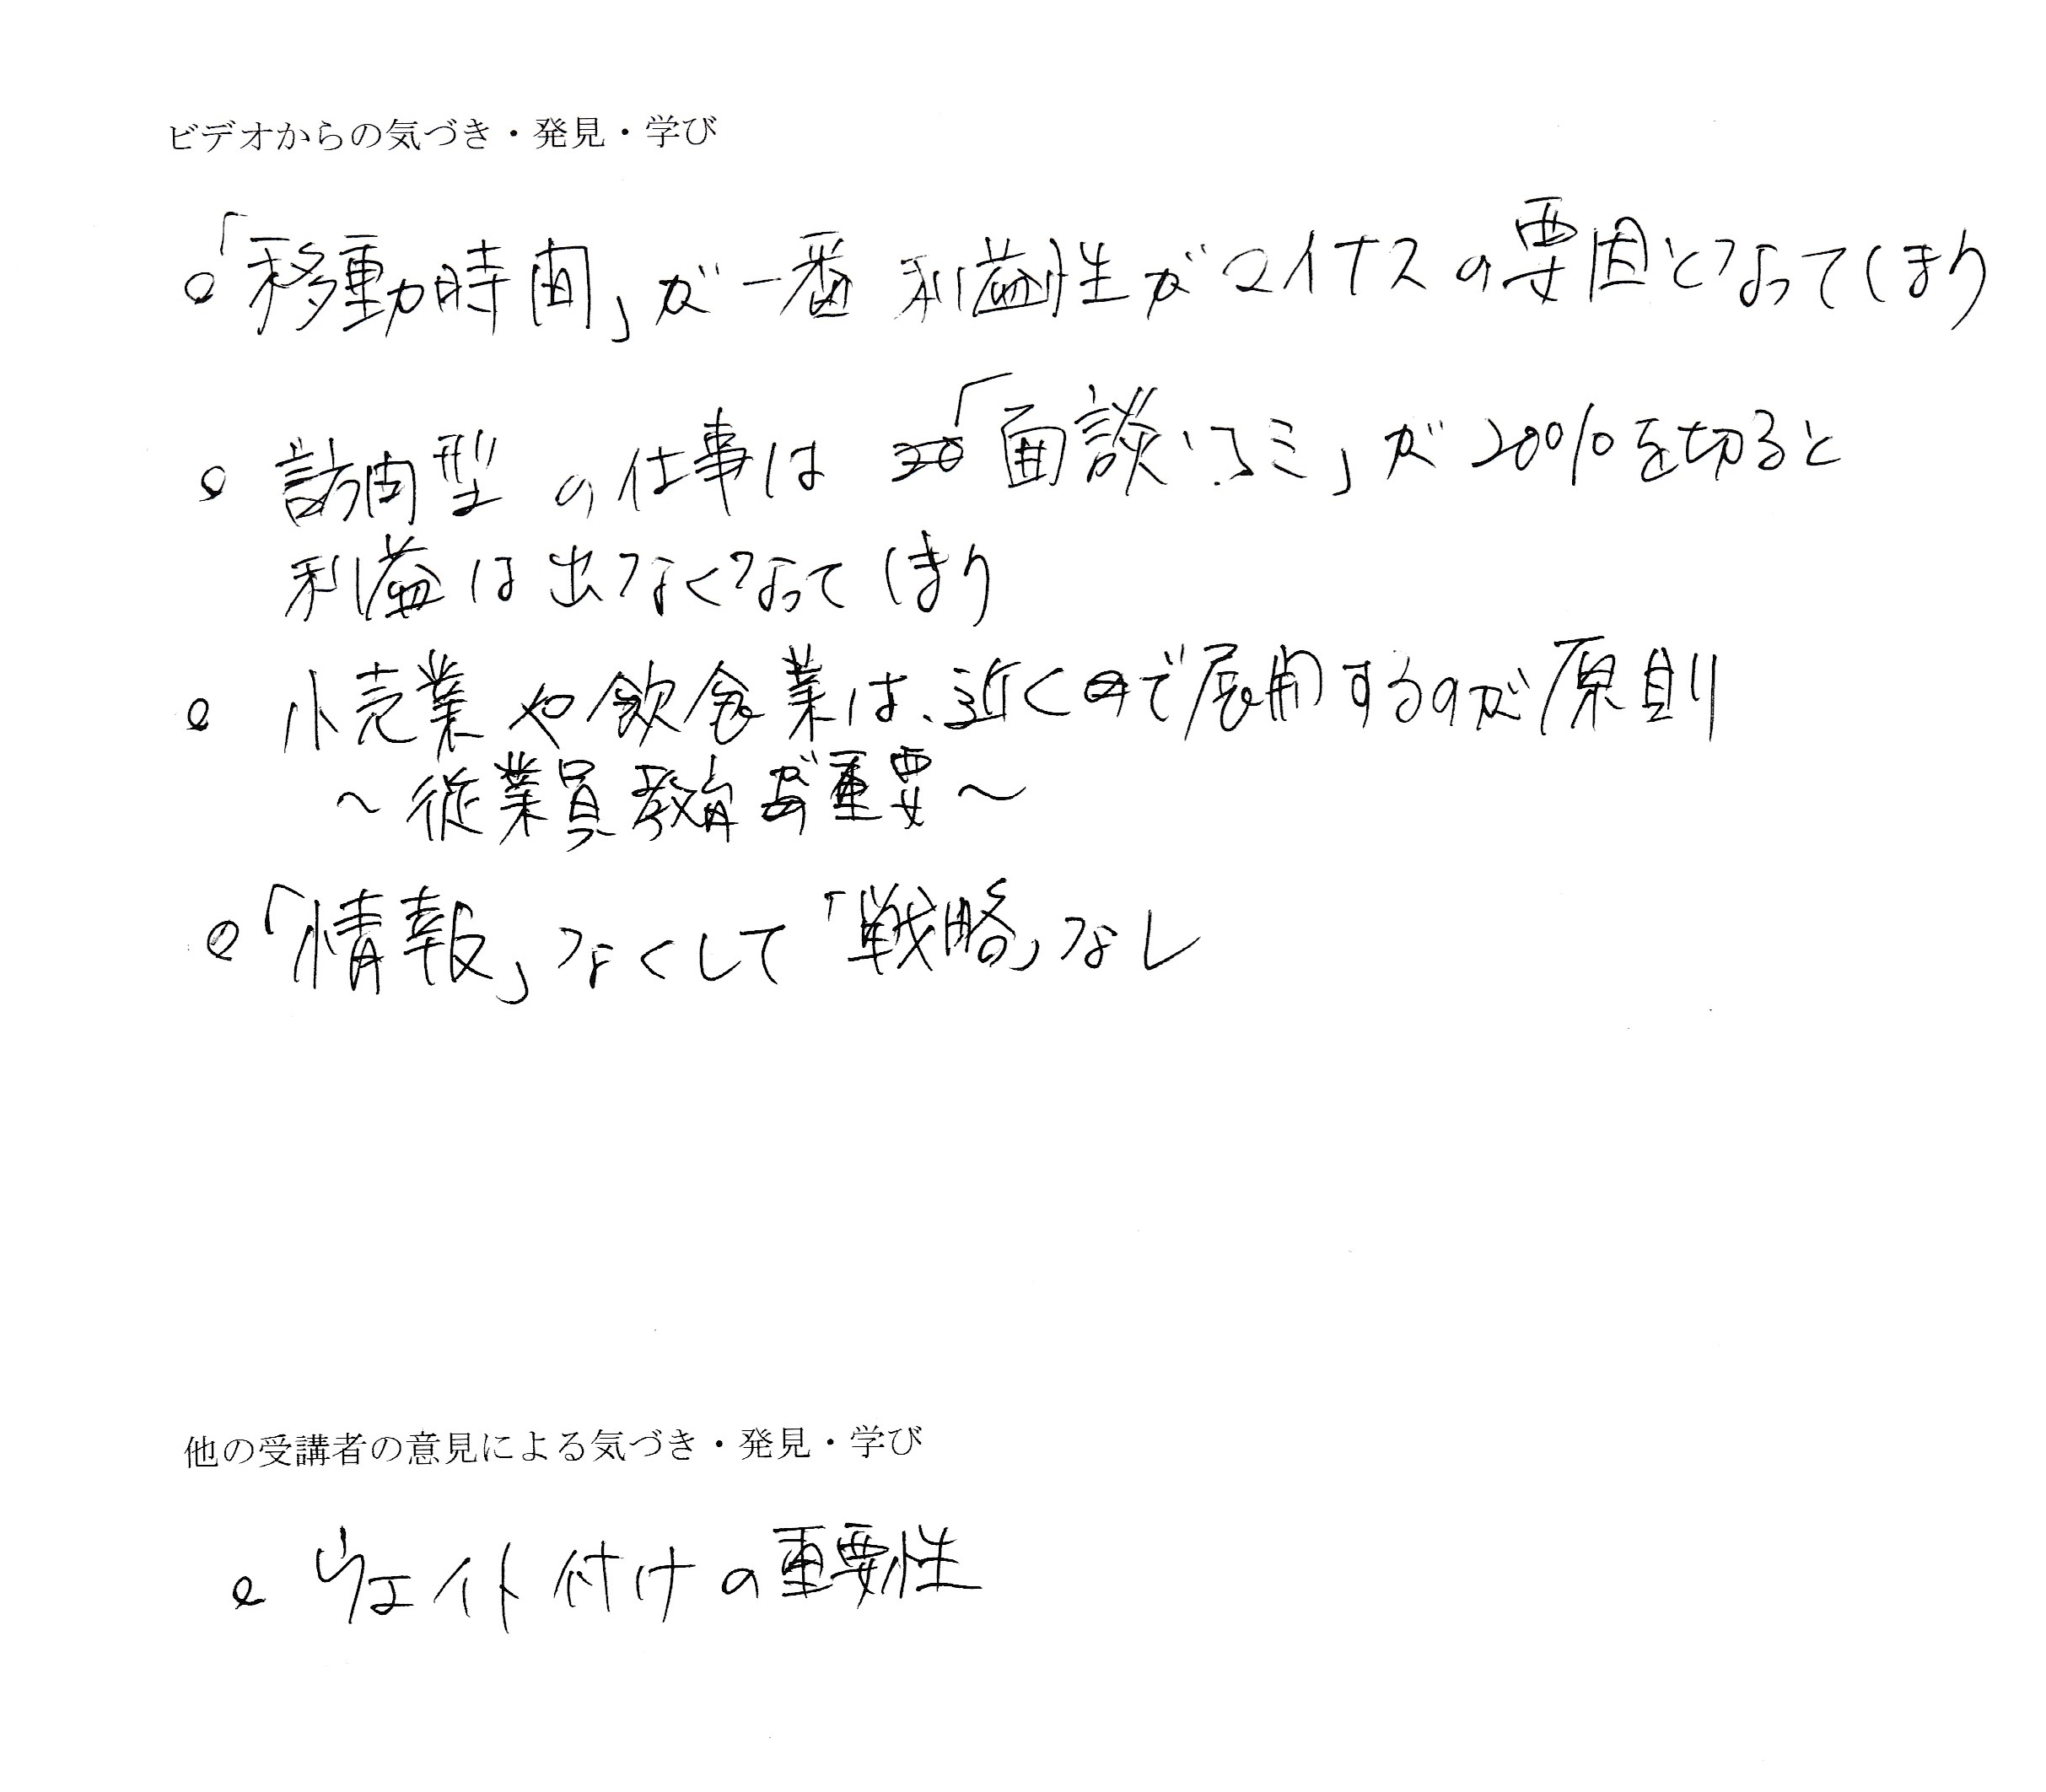 ビデオからの気づき・発見・学び
「移動時間」が一番 利益性がマイナスの要因となってしまう
訪問型の仕事は「面談 」が20%を切ると
利益は出なくなってしまう
小売業や飲食業は、近くで展開するのが原則
～従業員教育が重要～
「情報」なくして「戦略」なし
他の受講者の意見による気づき・発見・学び
ウエイト付けの重要性